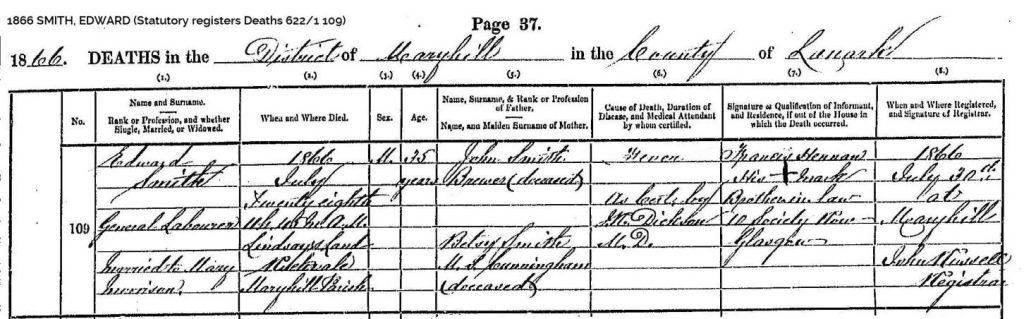 1866 SMITH, EDWARD (Statutory registers Deaths 622/1 109)
Page 37.
1866. DEATHS in the District of Maryhill in the County of Lanark
(1.) (2.) (3.) (4.) (5.) (6.) (7.) (8.)
No.
Name and Surname.
Rank or Profession, and whether
Single, Married, or Widowed.
When and Where Died.
Sex.
Age.
Name, Surname, & Rank or Profession
of Father.
Name, and Maiden Surname of Mother.
Cause of Death, Duration of
Disease, and Medical Attendant
by whom certified.
Signature & Qualification of Informant,
and Residence, if out of the House in
which the Death occurred.
When and Where Registered,
and Signature of Registrar.
109
Edward
Smith
General Labourer
Married to Mary
Morrison.
1866
July
Twenty eighth
4h. M. A.M.
Lindsays Land
Kelvindale
Maryhill Parish
M.
35
years
John Smith
Brewer (deceased)
Betsy Smith
M.S. Cunningham
(deceased)
Fever
As Cert. by
Dickson
M.D.
Francis Hennan
His + mark
Brother in law
10 Society Row
Glasgow
1866
July 30th
at
Maryhill
John Russell
Registrar